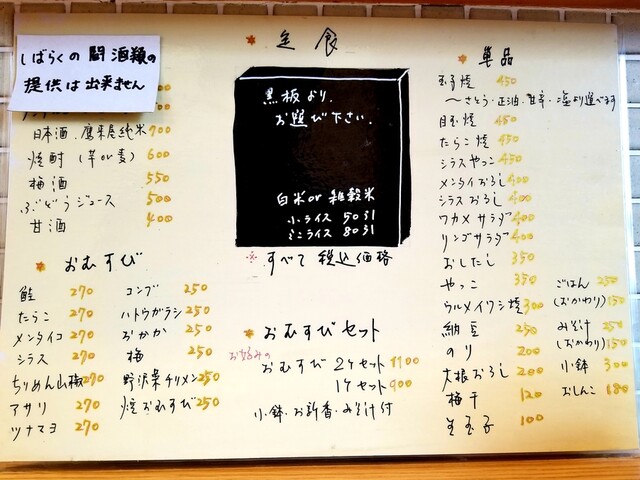 しばらくの間 酒類の
提供は出来ません
日本酒.鷹来屋純米 700
焼酎(芋or麦) 600
梅酒 550
ぶどうジュース 500
甘酒 400
定食
黒板より、
お選び下さい.
白米or雑穀米
小ライス 50引
ミニライス 80引
※すべて税込価格
おむすび
鮭 270
たらこ 270
メンタイコ 270
シラス 270
ちりめん山椒 270
アサリ 270
ツナマヨ 270
コンブ 250
ハトウガラシ 250
おかか 250
梅 250
野沢菜チリメン 250
焼おむすび 250
おむすびセット
お好みの
おむすび 2ケセット 1100
1ケセット 900
小鉢・お新香・みそ汁付
単品
玉子焼 450
〜さとう・正油・甘辛・塩より選べます
目玉焼 450
たらこ焼 450
シラスやっこ 450
メンタイおろし 400
シラスおろし 400
ワカメサラダ 400
リンゴサラダ 400
おしたし 350
やっこ 350
ウルメイワシ焼 300
納豆 250
のり 200
大根おろし 200
梅干 120
生玉子 100
ごはん 250
(おかわり) 150
みそ汁 250
(おかわり) 150
小鉢 300
おしんこ 180